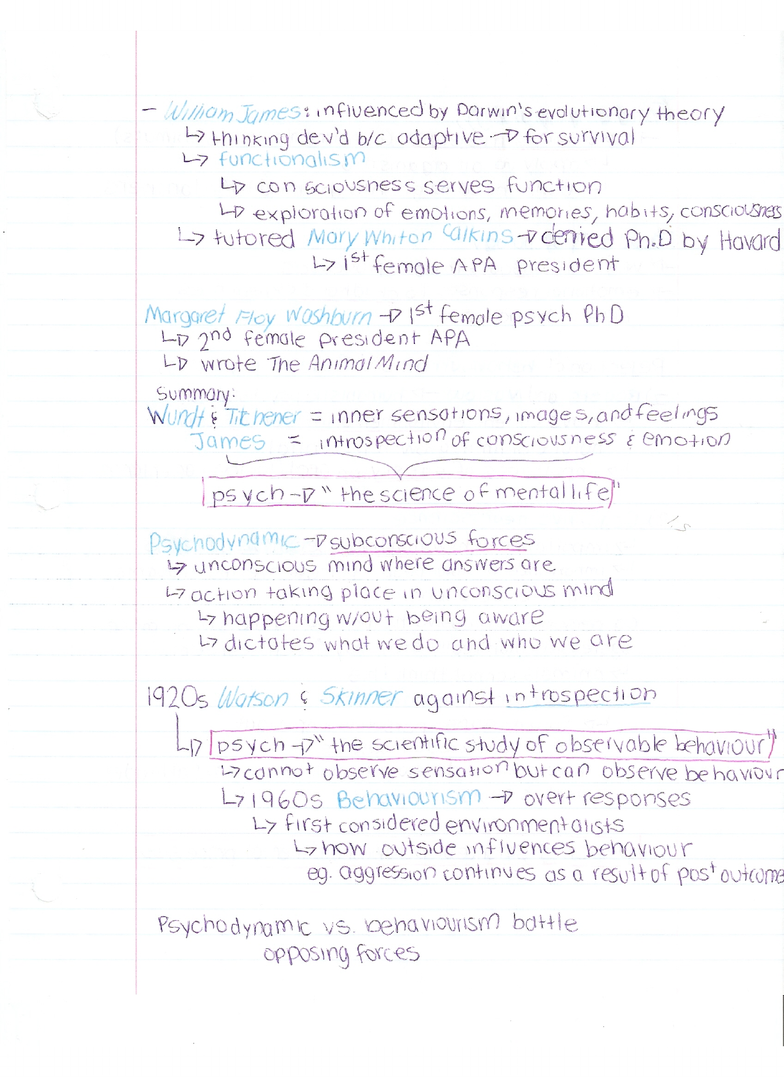 - William James: influenced by Darwin's evolutionary theory
↳ thinking dev'd b/c adaptive → for survival
↳ functionalism
↳ consciousness serves function
↳ exploration of emotions, memories, habits, consciousness
↳ tutored Mary Whiton Calkins → denied Ph.D by Havard
↳ 1st female APA president
Margaret Floy Washburn → 1st female psych PhD
↳ 2nd female president APA
↳ wrote The Animal Mind
Summary:
Wundt & Titchener = inner sensations, images, and feelings
James = introspection of consciousness & emotion
psych → "the science of mental life"
Psychodynamic → subconscious forces
↳ unconscious mind where answers are
↳ action taking place in unconscious mind
↳ happening w/out being aware
↳ dictates what we do and who we are
1920s Watson & Skinner against introspection
↳ psych → "the scientific study of observable behaviour"
↳ cannot observe sensation but can observe behaviour
↳ 1960s Behaviourism → overt responses
↳ first considered environmentalists
↳ how outside influences behaviour
eg. aggression continues as a result of post outcome
Psychodynamic vs. behaviourism battle
opposing forces